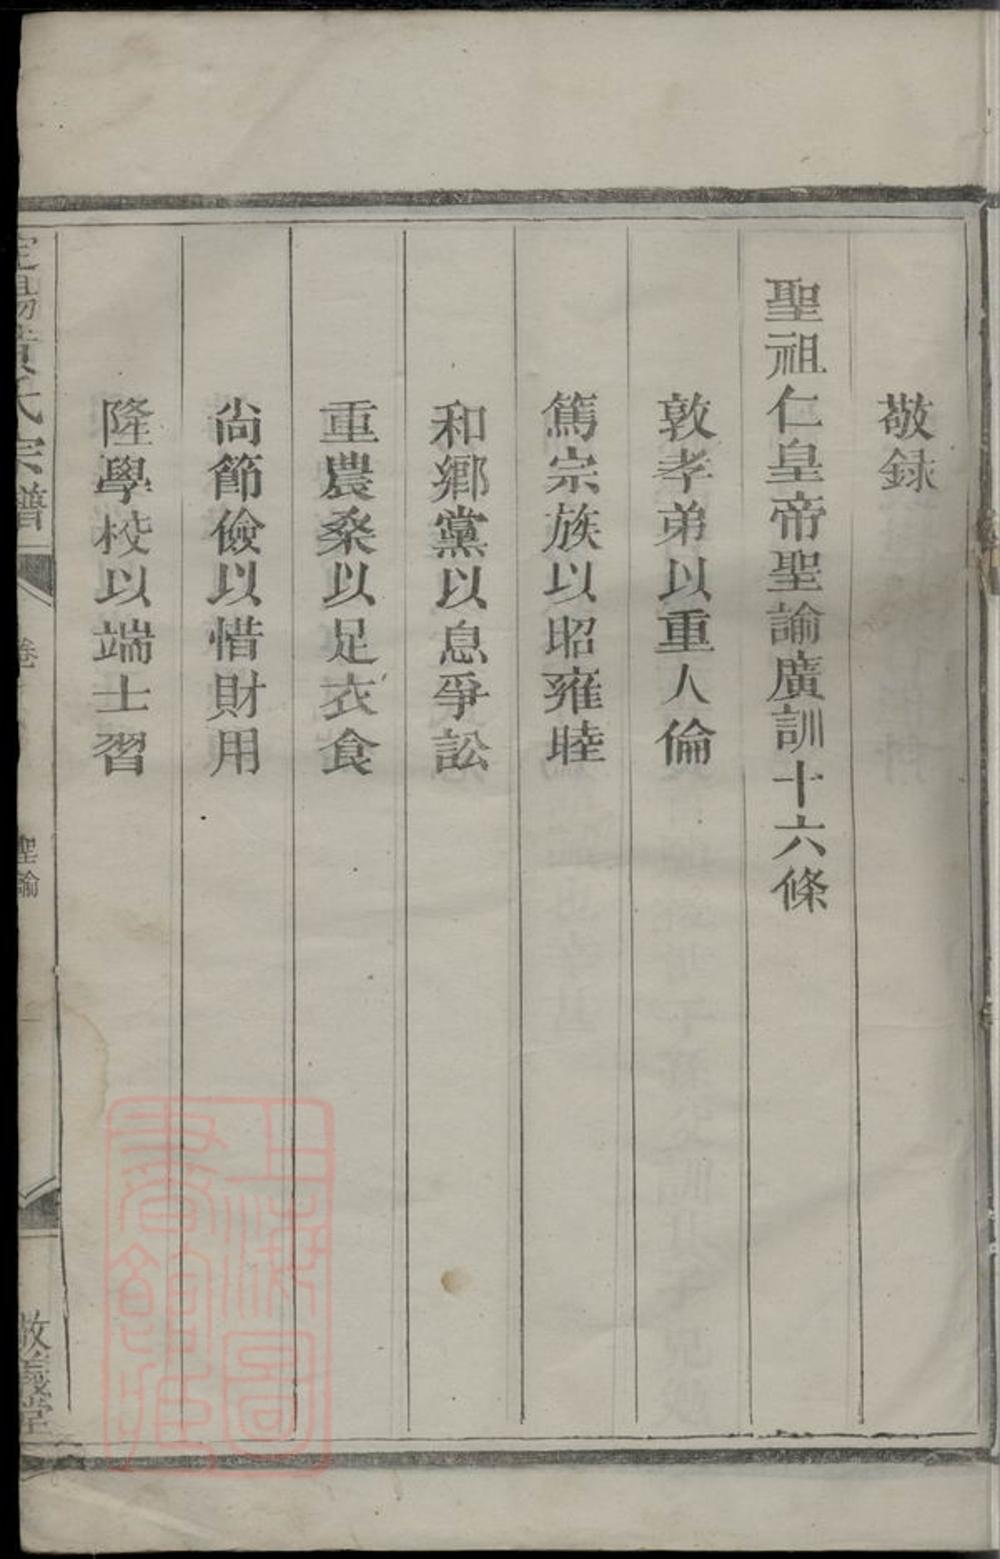 敬録
聖祖仁皇帝聖諭廣訓十六條
敦孝弟以重人倫
篤宗族以昭雍睦
和鄉黨以息爭訟
重農桑以足衣食
尚節儉以惜財用
隆學校以端士習
黃氏宗譜
卷
聖諭
一
敬義堂
上海圖書館藏